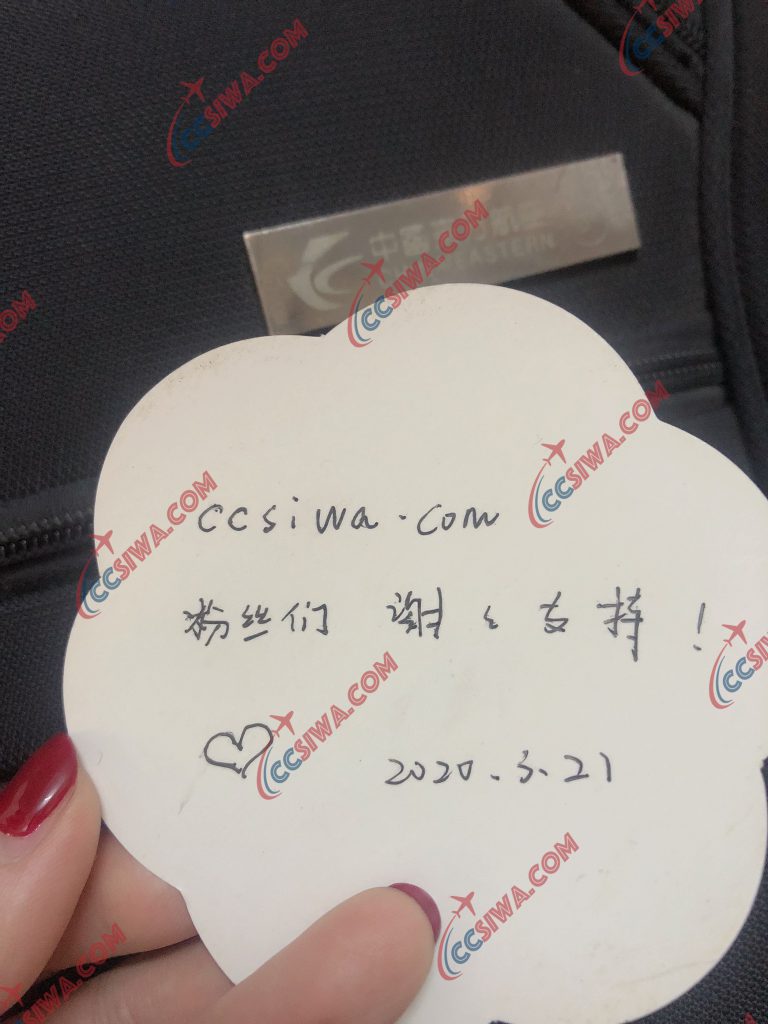 CCSIWA.COM
CCSIWA.COM
CCSIWA.COM
中国东方航空
CHINA EASTERN
CCSIWA.COM
CCSIWA.COM
ccsiwa.com
CCSIWA.COM
粉丝们 谢々支持!
CCSIWA.COM
CCSIWA.COM
♡ 2020.3.21
CCSIWA.COM
CCSIWA.COM